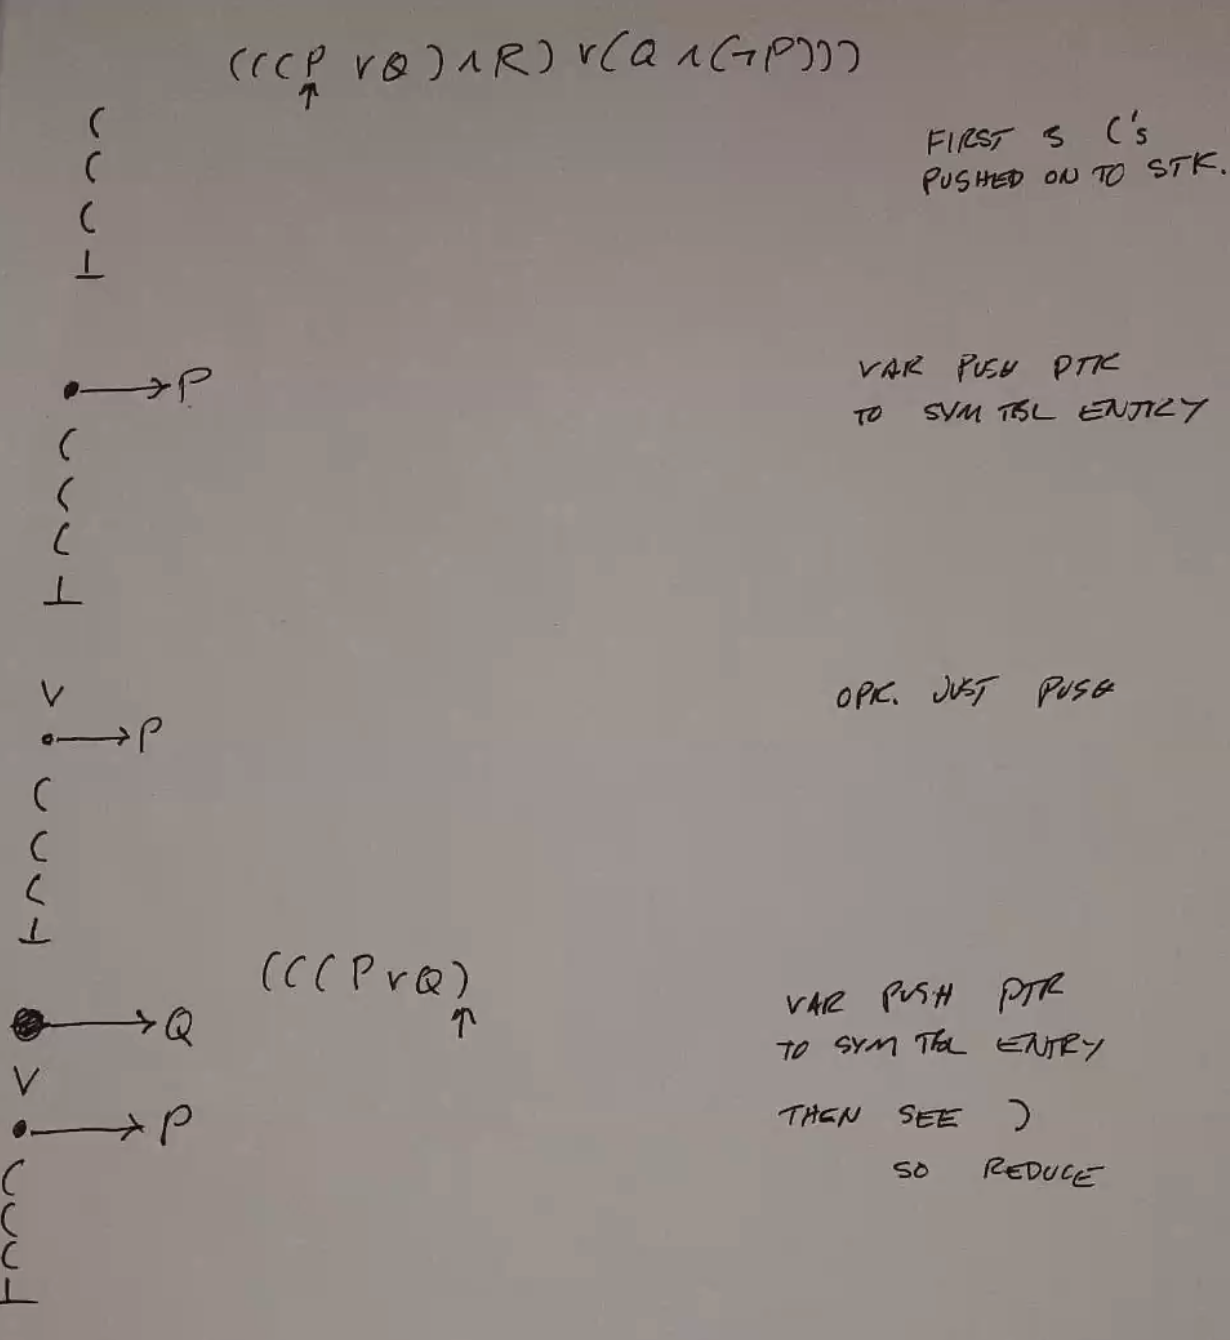 (((P ∨Q)∧R)∨(Q∧(¬P)))
↑
(
(
(
⊥
FIRST 3 ('s
PUSHED ON TO STK.
•→P
(
(
(
⊥
VAR PUSH PTR
TO SYM TBL ENTRY
∨
•→P
(
(
(
⊥
OPR. JUST PUSH
(((P∨Q)
↑
•→Q
∨
•→P
(
(
(
⊥
VAR PUSH PTR
TO SYM TBL ENTRY
THEN SEE )
SO REDUCE